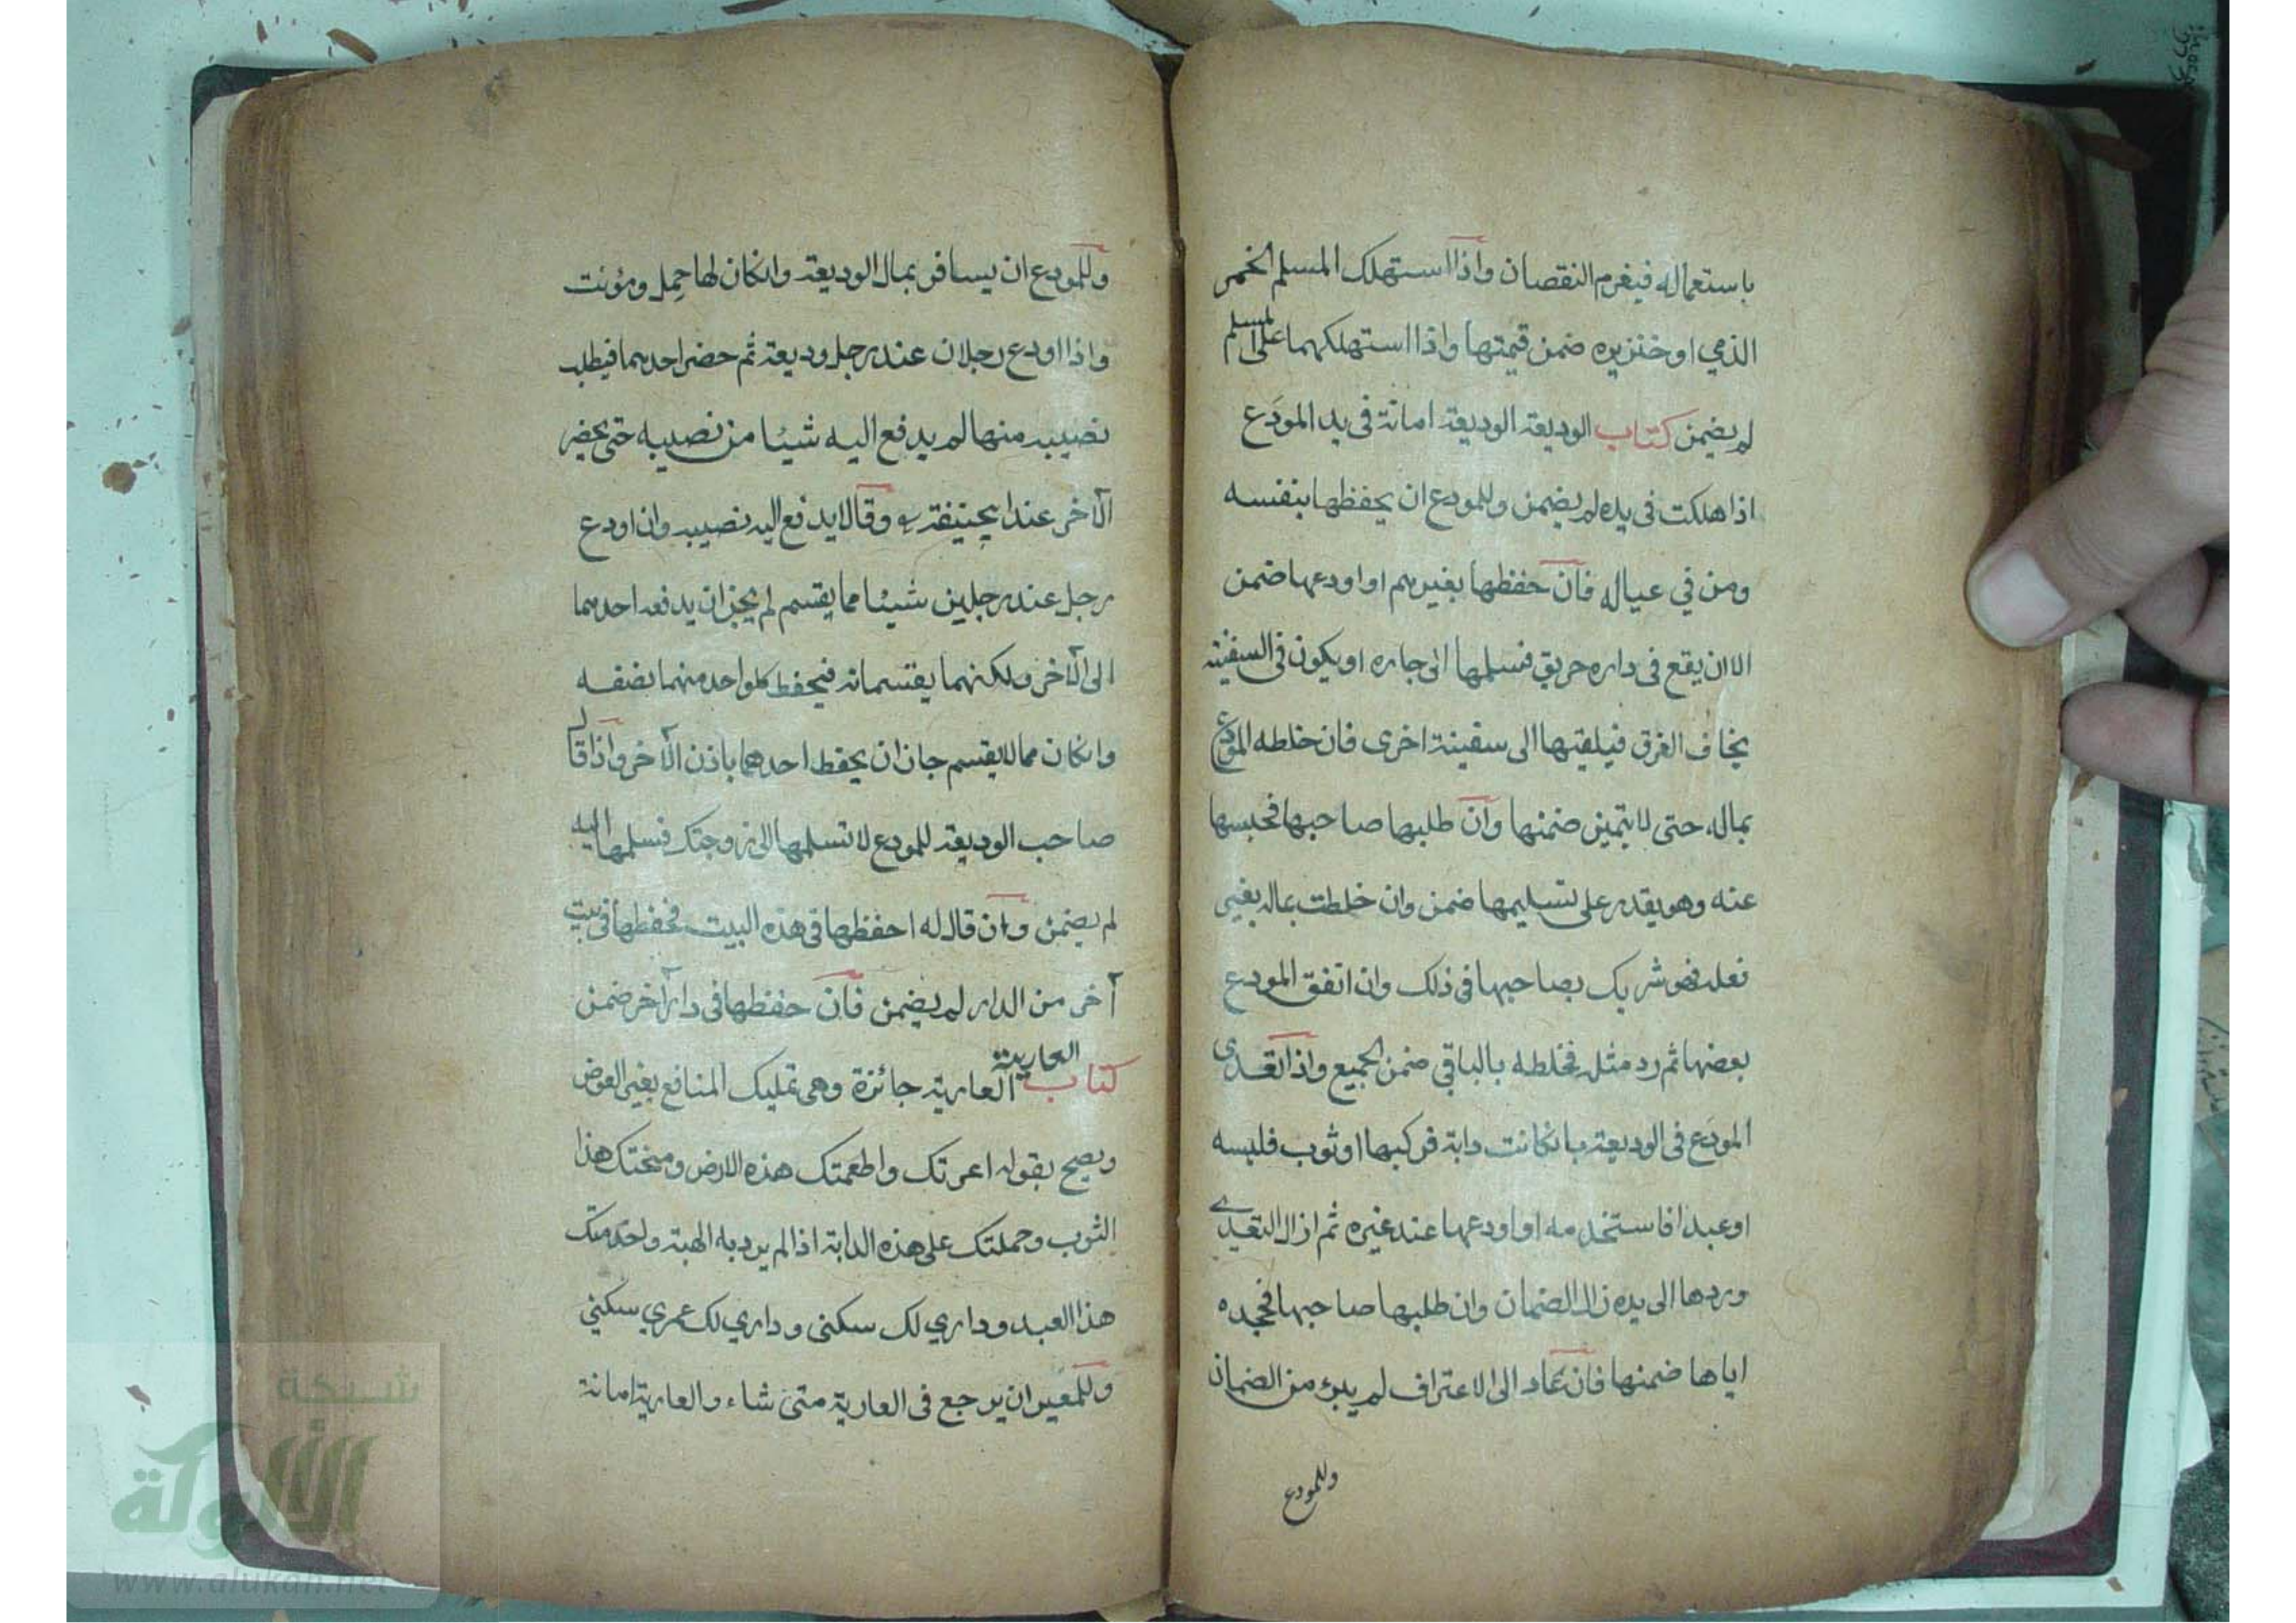 باستعماله فيغرم النقصان واذا استهلك المسلم الخمر
الذمي او خنزيره ضمن قيمتها واذا استهلكهما على المسلم
لم يضمن كتاب الوديعة الوديعة امانة فى يد المودَع
اذا هلكت فى يده لم يضمن وللمودع ان يحفظها بنفسه
ومن في عياله فان حفظها بغيرهم او اودعها ضمن
الا ان يقع فى داره حريق فسلمها الى جاره او يكون فى السفينة
يخاف الغرق فيلقيها الى سفينة اخرى فان خلطه المودع
بماله حتى لا يتميز ضمنها وان طلبها صاحبها فحبسها
عنه وهو يقدر على تسليمها ضمن وان خلطت بماله بغير
فعله فهو شريك بصاحبها فى ذلك وان اتفق المودع
بعضها ثم رد مثله فخلطه بالباقي ضمن الجميع واذا تعدى
المودَع فى الوديعة بانكانت دابة فركبها او ثوب فلبسه
او عبدا فاستخدمه او اودعها عند غيره ثم ازال التعدي
وردها الى يده زال الضمان وان طلبها صاحبها فجحده
اياها ضمنها فان عاد الى الاعتراف لم يبرء من الضمان
وللمودع
وللمودع ان يسافر بمال الوديعة وانكان لها حِمل ومؤنت
واذا اودع رجلان عند رجل وديعة ثم حضر احدهما فيطلب
نصيبه منها لم يدفع اليه شيئا من نصيبه حتى يحضر
الآخر عند ابيحنيفة وقالا يدفع اليه نصيبه وان اودع
رجل عند رجلين شيئا مما يقتسم لم يجز ان يدفعه احدهما
الى الآخر ولكنهما يقتسمانه فيحفظ كلواحد منهما نصفه
وانكان مما لا يقتسم جاز ان يحفظ احدهما باذن الآخر واذا قال
صاحب الوديعة للمودع لا تسلمها الى زوجتك فسلمها اليه
لم يضمن وان قال له احفظها فى هذه البيت فحفظها فى بيت
آخر من الدار لم يضمن فان حفظها فى دار آخر ضمن
كتاب العارية العارية جائزة وهى تمليك المنافع بغير العوض
ويصح بقوله اعرتك واطعمتك هذه الارض ومنحتك هذا
الثوب وحملتك على هذه الدابة اذا لم يرد به الهبة واخدمتك
هذا العبد وداري لك سكنى وداري لك عمري سكني
وللمعير ان يرجع فى العارية متى شاء والعارية امانة
شبكة
الألوكة
www.alukah.net